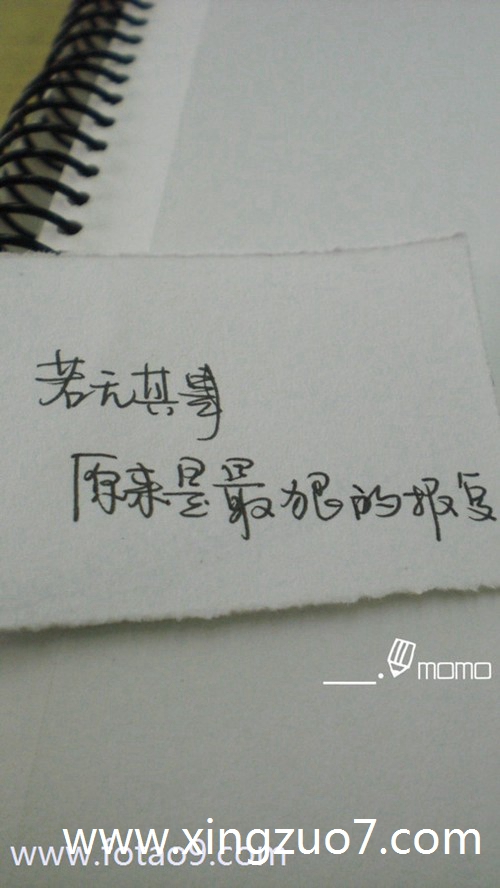 若无其事
原来是最狠的报复
___. momo
www.xingzuo7.com
www.fotao9.com